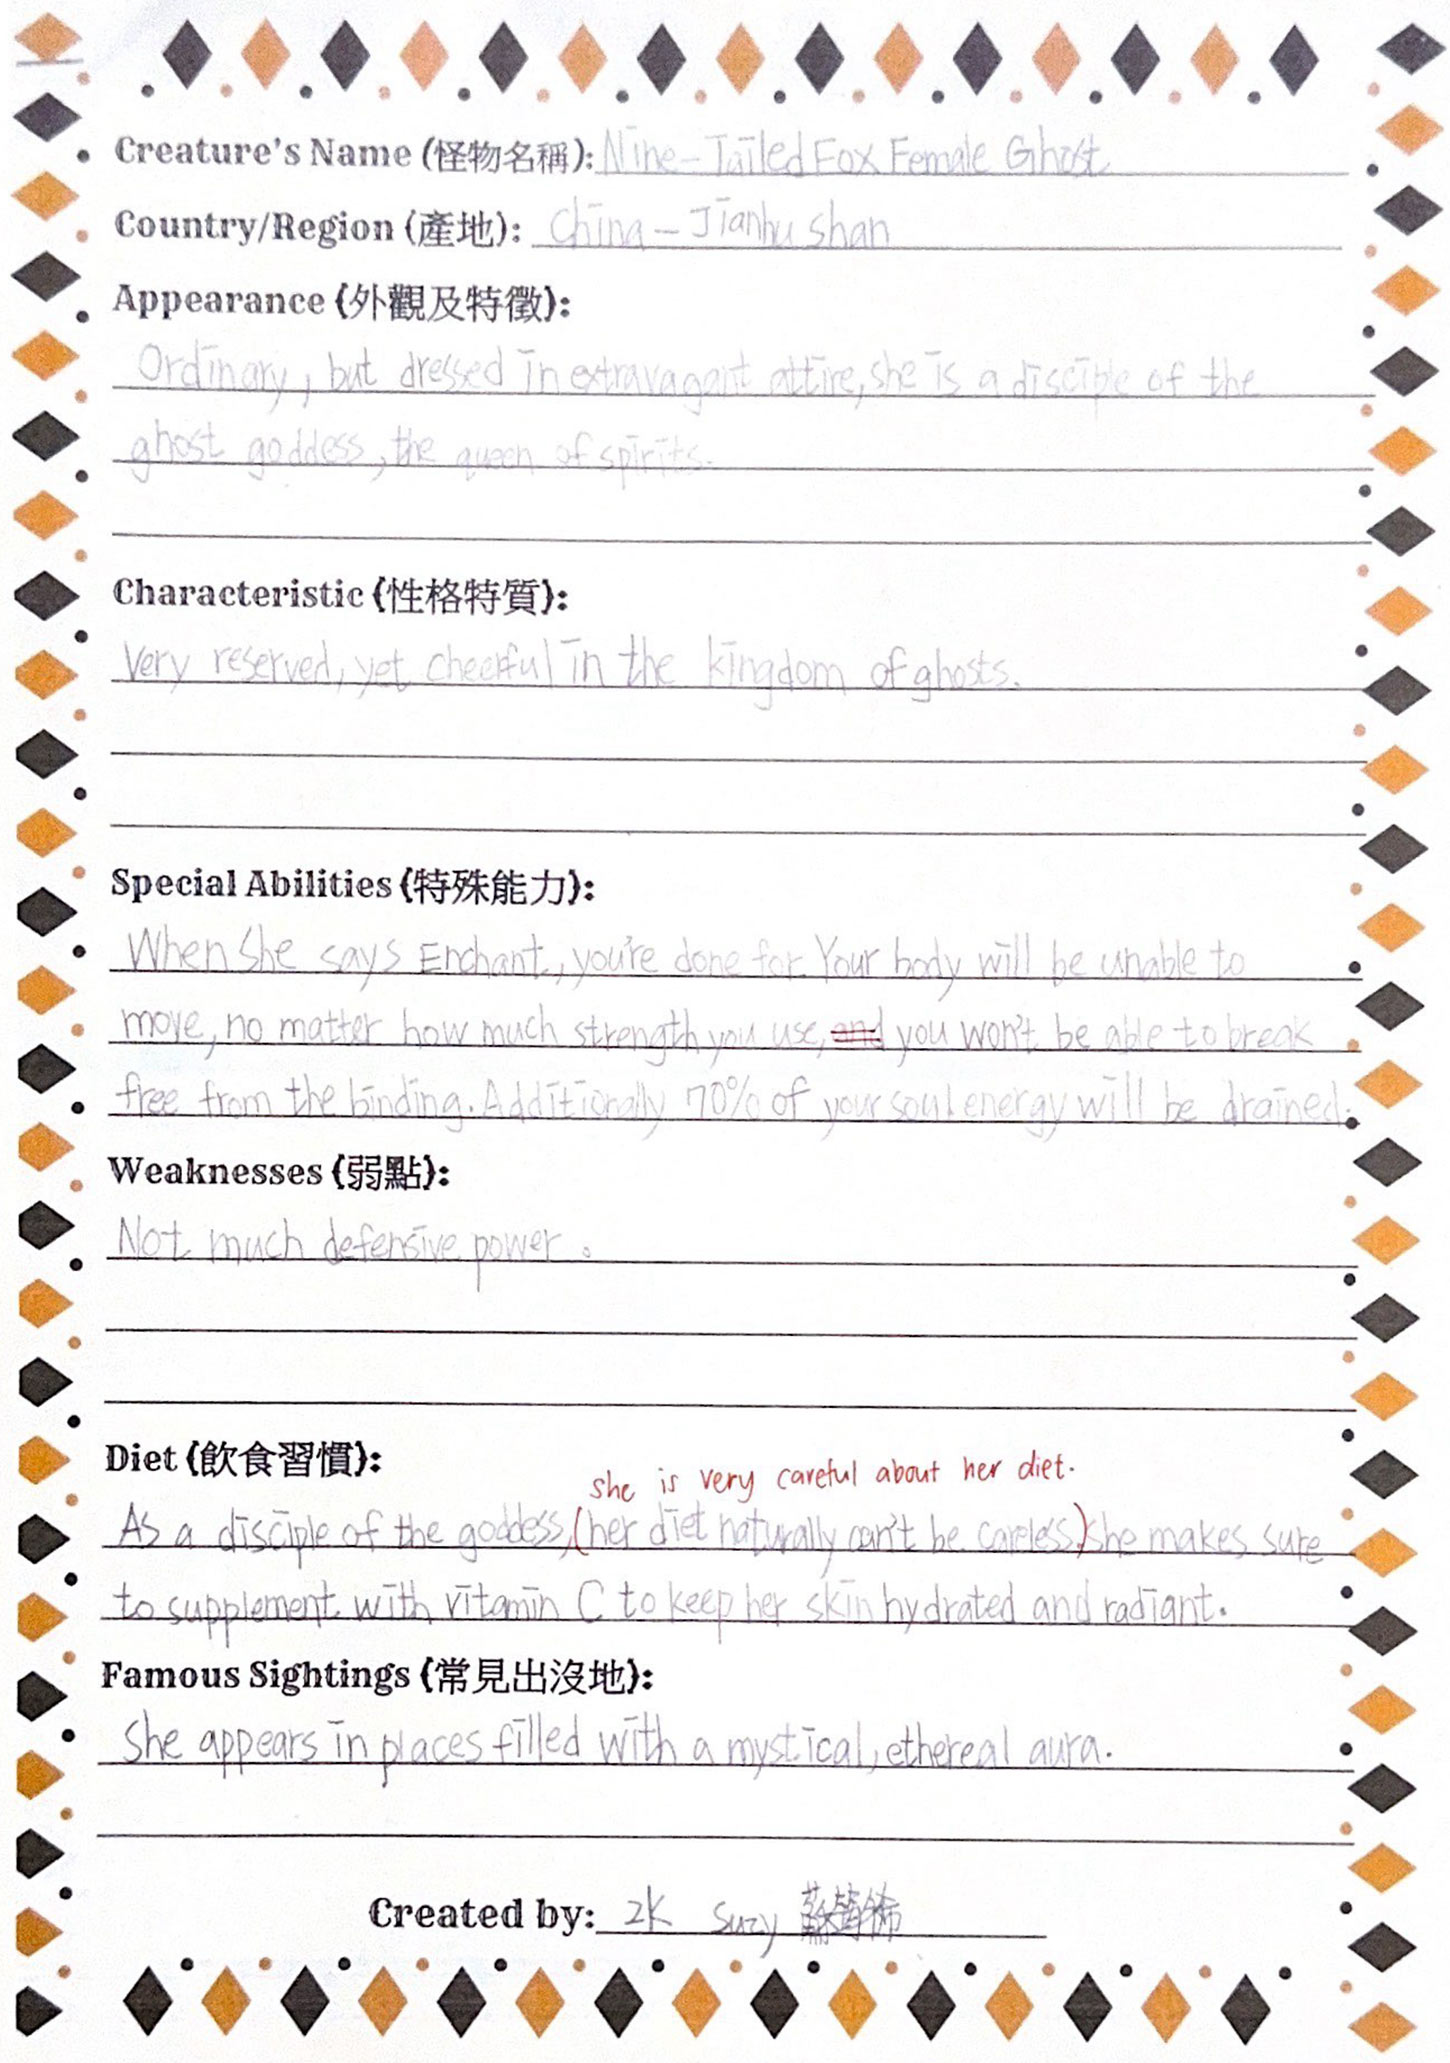 Creature's Name (怪物名稱): Nine-Tailed Fox Female Ghost
Country/Region (產地): China - Jianhu shan
Appearance (外觀及特徵):
Ordinary, but dressed in extravagant attire, she is a disciple of the
ghost goddess, the queen of spirits.
Characteristic (性格特質):
Very reserved, yet cheerful in the kingdom of ghosts.
Special Abilities (特殊能力):
When She says Enchant, you're done for. Your body will be unable to
move, no matter how much strength you use, and you won't be able to break
free from the binding. Additionally 70% of your soul energy will be drained.
Weaknesses (弱點):
Not much defensive power.
Diet (飲食習慣):
she is very careful about her diet.
As a disciple of the goddess, (her diet naturally can't be careless.) she makes sure
to supplement with vitamin C to keep her skin hydrated and radiant.
Famous Sightings (常見出沒地):
She appears in places filled with a mystical, ethereal aura.
Created by: 2K Suzy 蘇